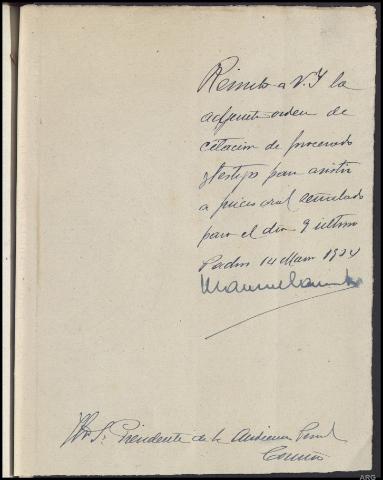 Remito a V. I. la
adjunta orden de
citacion de procesado
y testigos para asistir
a juicio oral señalado
para el dia 9 ultimo
14 Mayo 1924
Manuel
Sr. Presidente de la Audiencia
Coruña
ARG